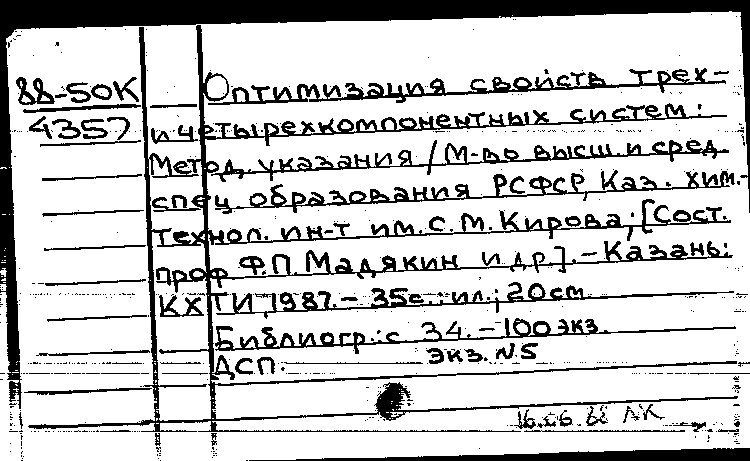 88-50К
4357
Оптимизация свойств трех-
и четырехкомпонентных систем:
Метод. указания / М-во высш. и сред.
спец. образования РСФСР, Каз. хим.-
технол. ин-т им. С. М. Кирова; [Сост.
проф. Ф.П. Мадякин и др]. - Казань:
КХТИ, 1987. - 35с.: ил.; 20см
Библиогр.: с 34. - 100 экз.
ДСП. экз. N5